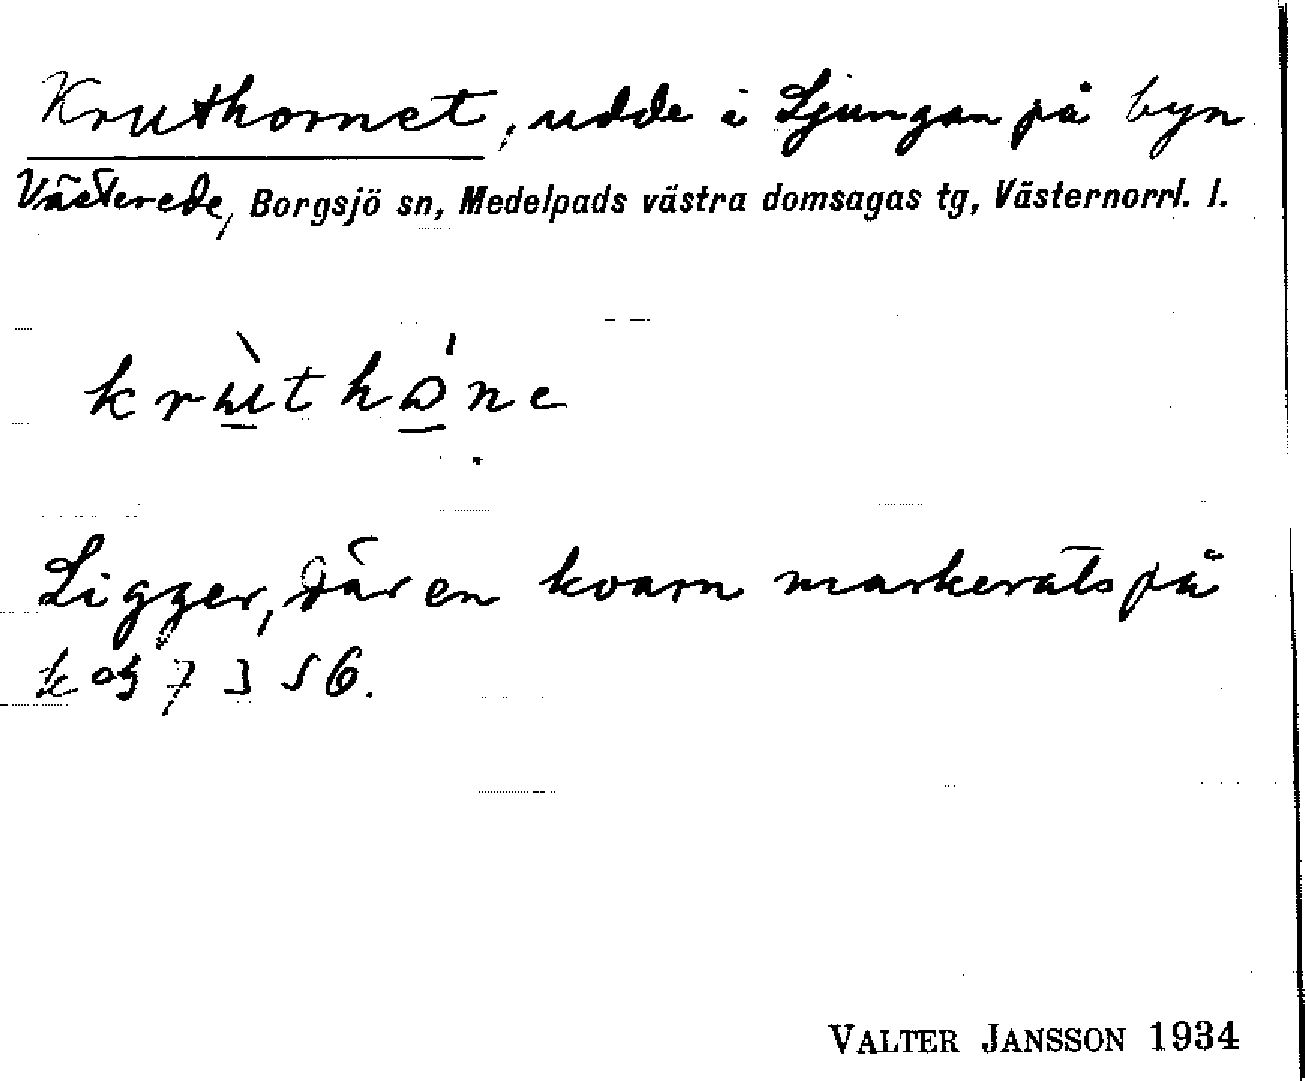 Kruthornet, udde i Ljungan på byn
Västerede, Borgsjö sn, Medelpads västra domsagas tg, Västernorrl. l.
krùthó̱ṇe
Ligger, där en kvarn markerats på
7356.
VALTER JANSSON 1934